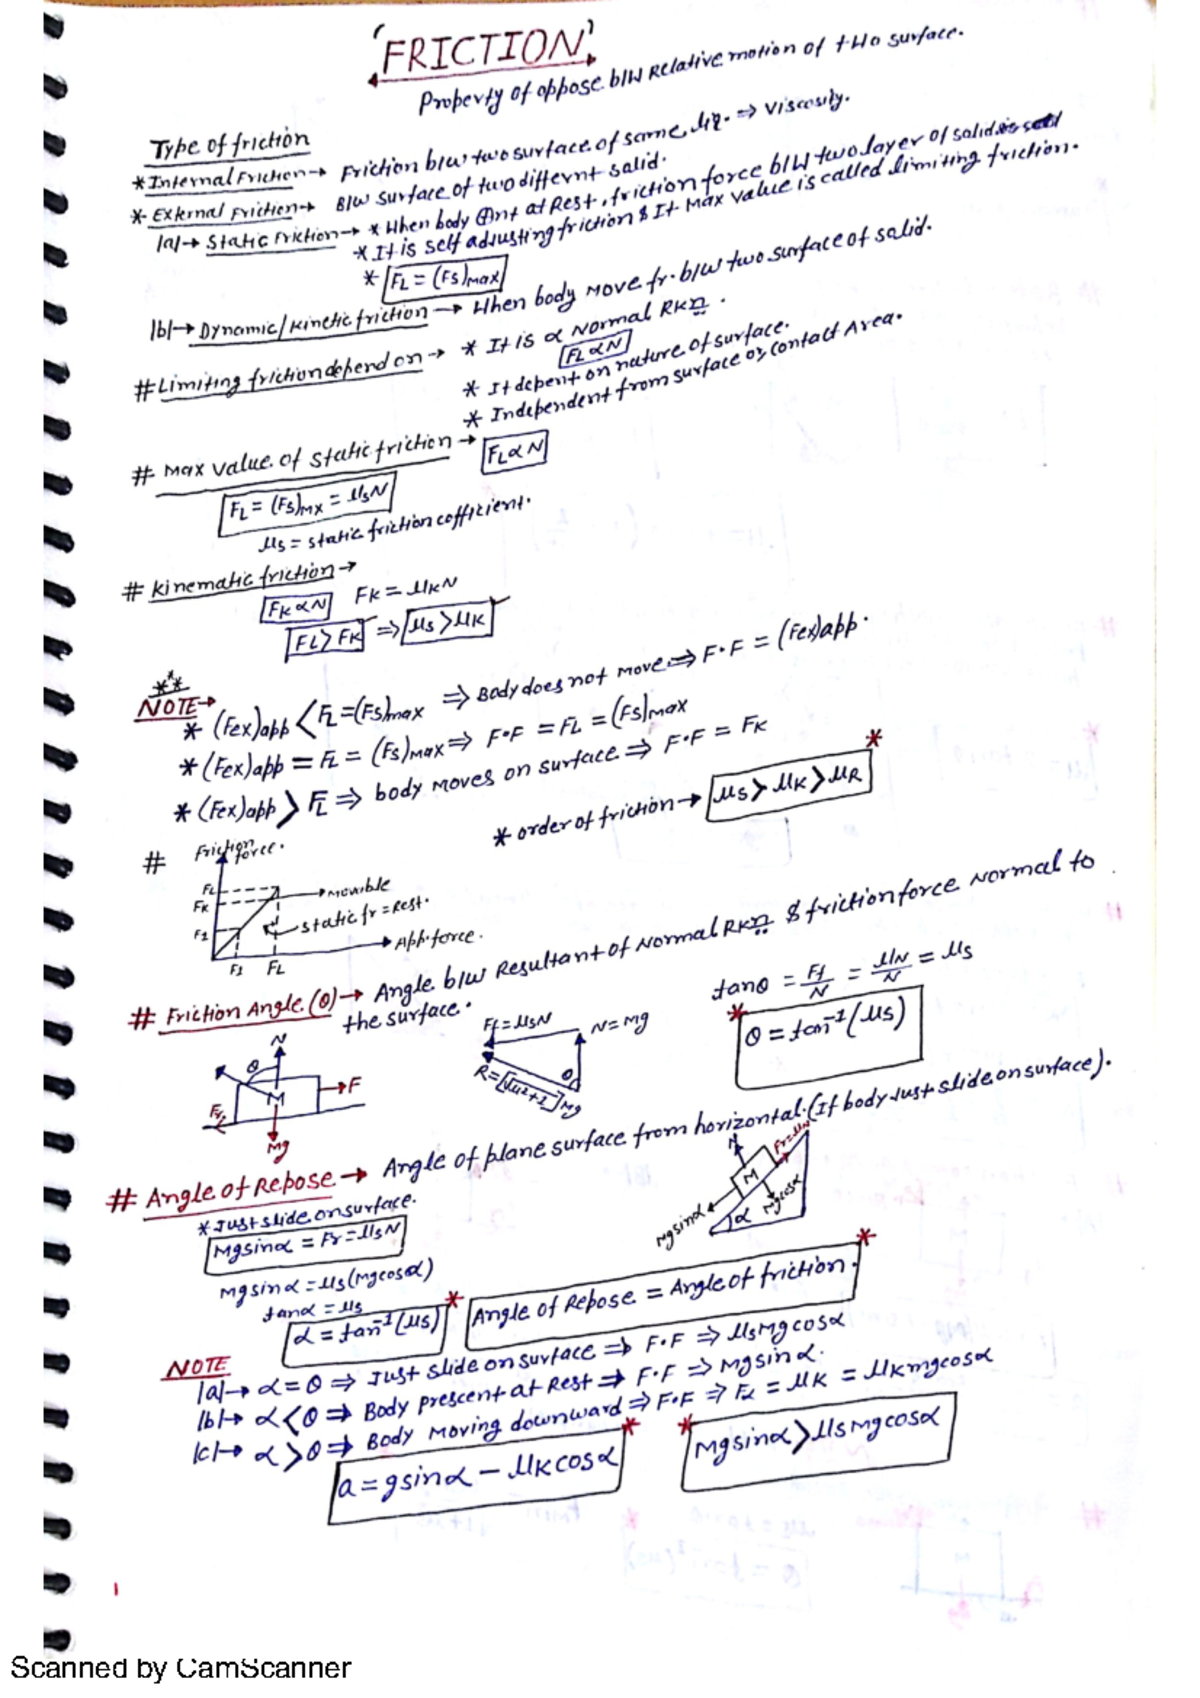 'FRICTION'
Property of oppose b/w Relative motion of two surface.
Type of friction
* Internal Friction → Friction b/w two surface of same liq. ⇒ Viscosity.
* External Friction → B/w surface of two differnt salid.
|a|→ Static Friction → * When body at Rest, friction force b/w two layer of solid
* It is self adjusting friction & It Max value is called limiting friction.
* FL = (Fs)Max
|b|→ Dynamic/Kinetic friction → When body Move fr. b/w two surface of salid.
# Limiting friction depend on → * It is ∝ Normal RKn.
FL ∝ N
* It depent on nature of surface.
* Independent from surface or contact Area.
# Max value of static friction → FL ∝ N
FL = (Fs)Mx = μsN
μs = static friction cofficient.
# Kinematic friction →
FK ∝ N FK = μKN
FL > FK ⇒ μs > μK
***
NOTE →
* (Fex)app < FL = (Fs)max ⇒ Body does not move ⇒ F.F = (Fex)app.
* (Fex)app = FL = (Fs)max ⇒ F.F = FL = (Fs)Max
* (Fex)app > FL ⇒ body moves on surface ⇒ F.F = FK
* order of friction → μs > μK > μR *
# Friction force.
FL
FK
F1
Movible
static fr = Rest.
App. force.
F1 FL
# Friction Angle (θ) → Angle b/w Resultant of Normal RKn & friction force Normal to
the surface.
tanθ = Ff/N = μN/N = μs
* θ = tan⁻¹(μs)
N
θ
M
F
Fr
Mg
Ff = μsN
N = Mg
θ
R = [√μ²+1] Mg
# Angle of Repose → Angle of plane surface from horizontal. (If body Just slide on surface).
N
Fr = μN
M
Mg sinα
α
Mg cosα
* Just slide on surface.
Mg sinα = Fr = μsN
Mg sinα = μs(Mg cosα)
tanα = μs
α = tan⁻¹(μs) *
Angle of Repose = Angle of friction. *
NOTE
|a|→ α = θ ⇒ Just slide on surface ⇒ F.F ⇒ μsMg cosα
|b|→ α < θ ⇒ Body prescent at Rest ⇒ F.F ⇒ Mg sinα.
|c|→ α > θ ⇒ Body Moving downward ⇒ F.F ⇒ Fk = μK = μKmg cosα
a = g sinα − μK cosα *
* Mg sinα > μsMg cosα
1
Scanned by CamScanner